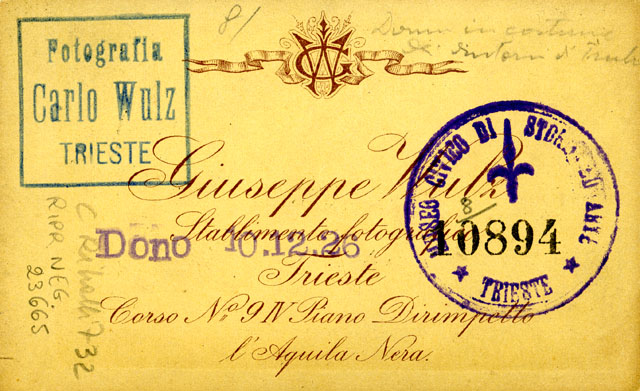 8/
Donna in costume
di dintorni di Trieste
Fotografia
Carlo Wulz
TRIESTE
Giuseppe Wulz
Stabilimento fotografico
Trieste
Corso Nº 9 IV Piano Dirimpetto
l'Aquila Nera.
Dono 10.12.26
MUSEO CIVICO DI STORIA ED ARTE
8/
10894
TRIESTE
RIPR. NEG.
23665
7-32